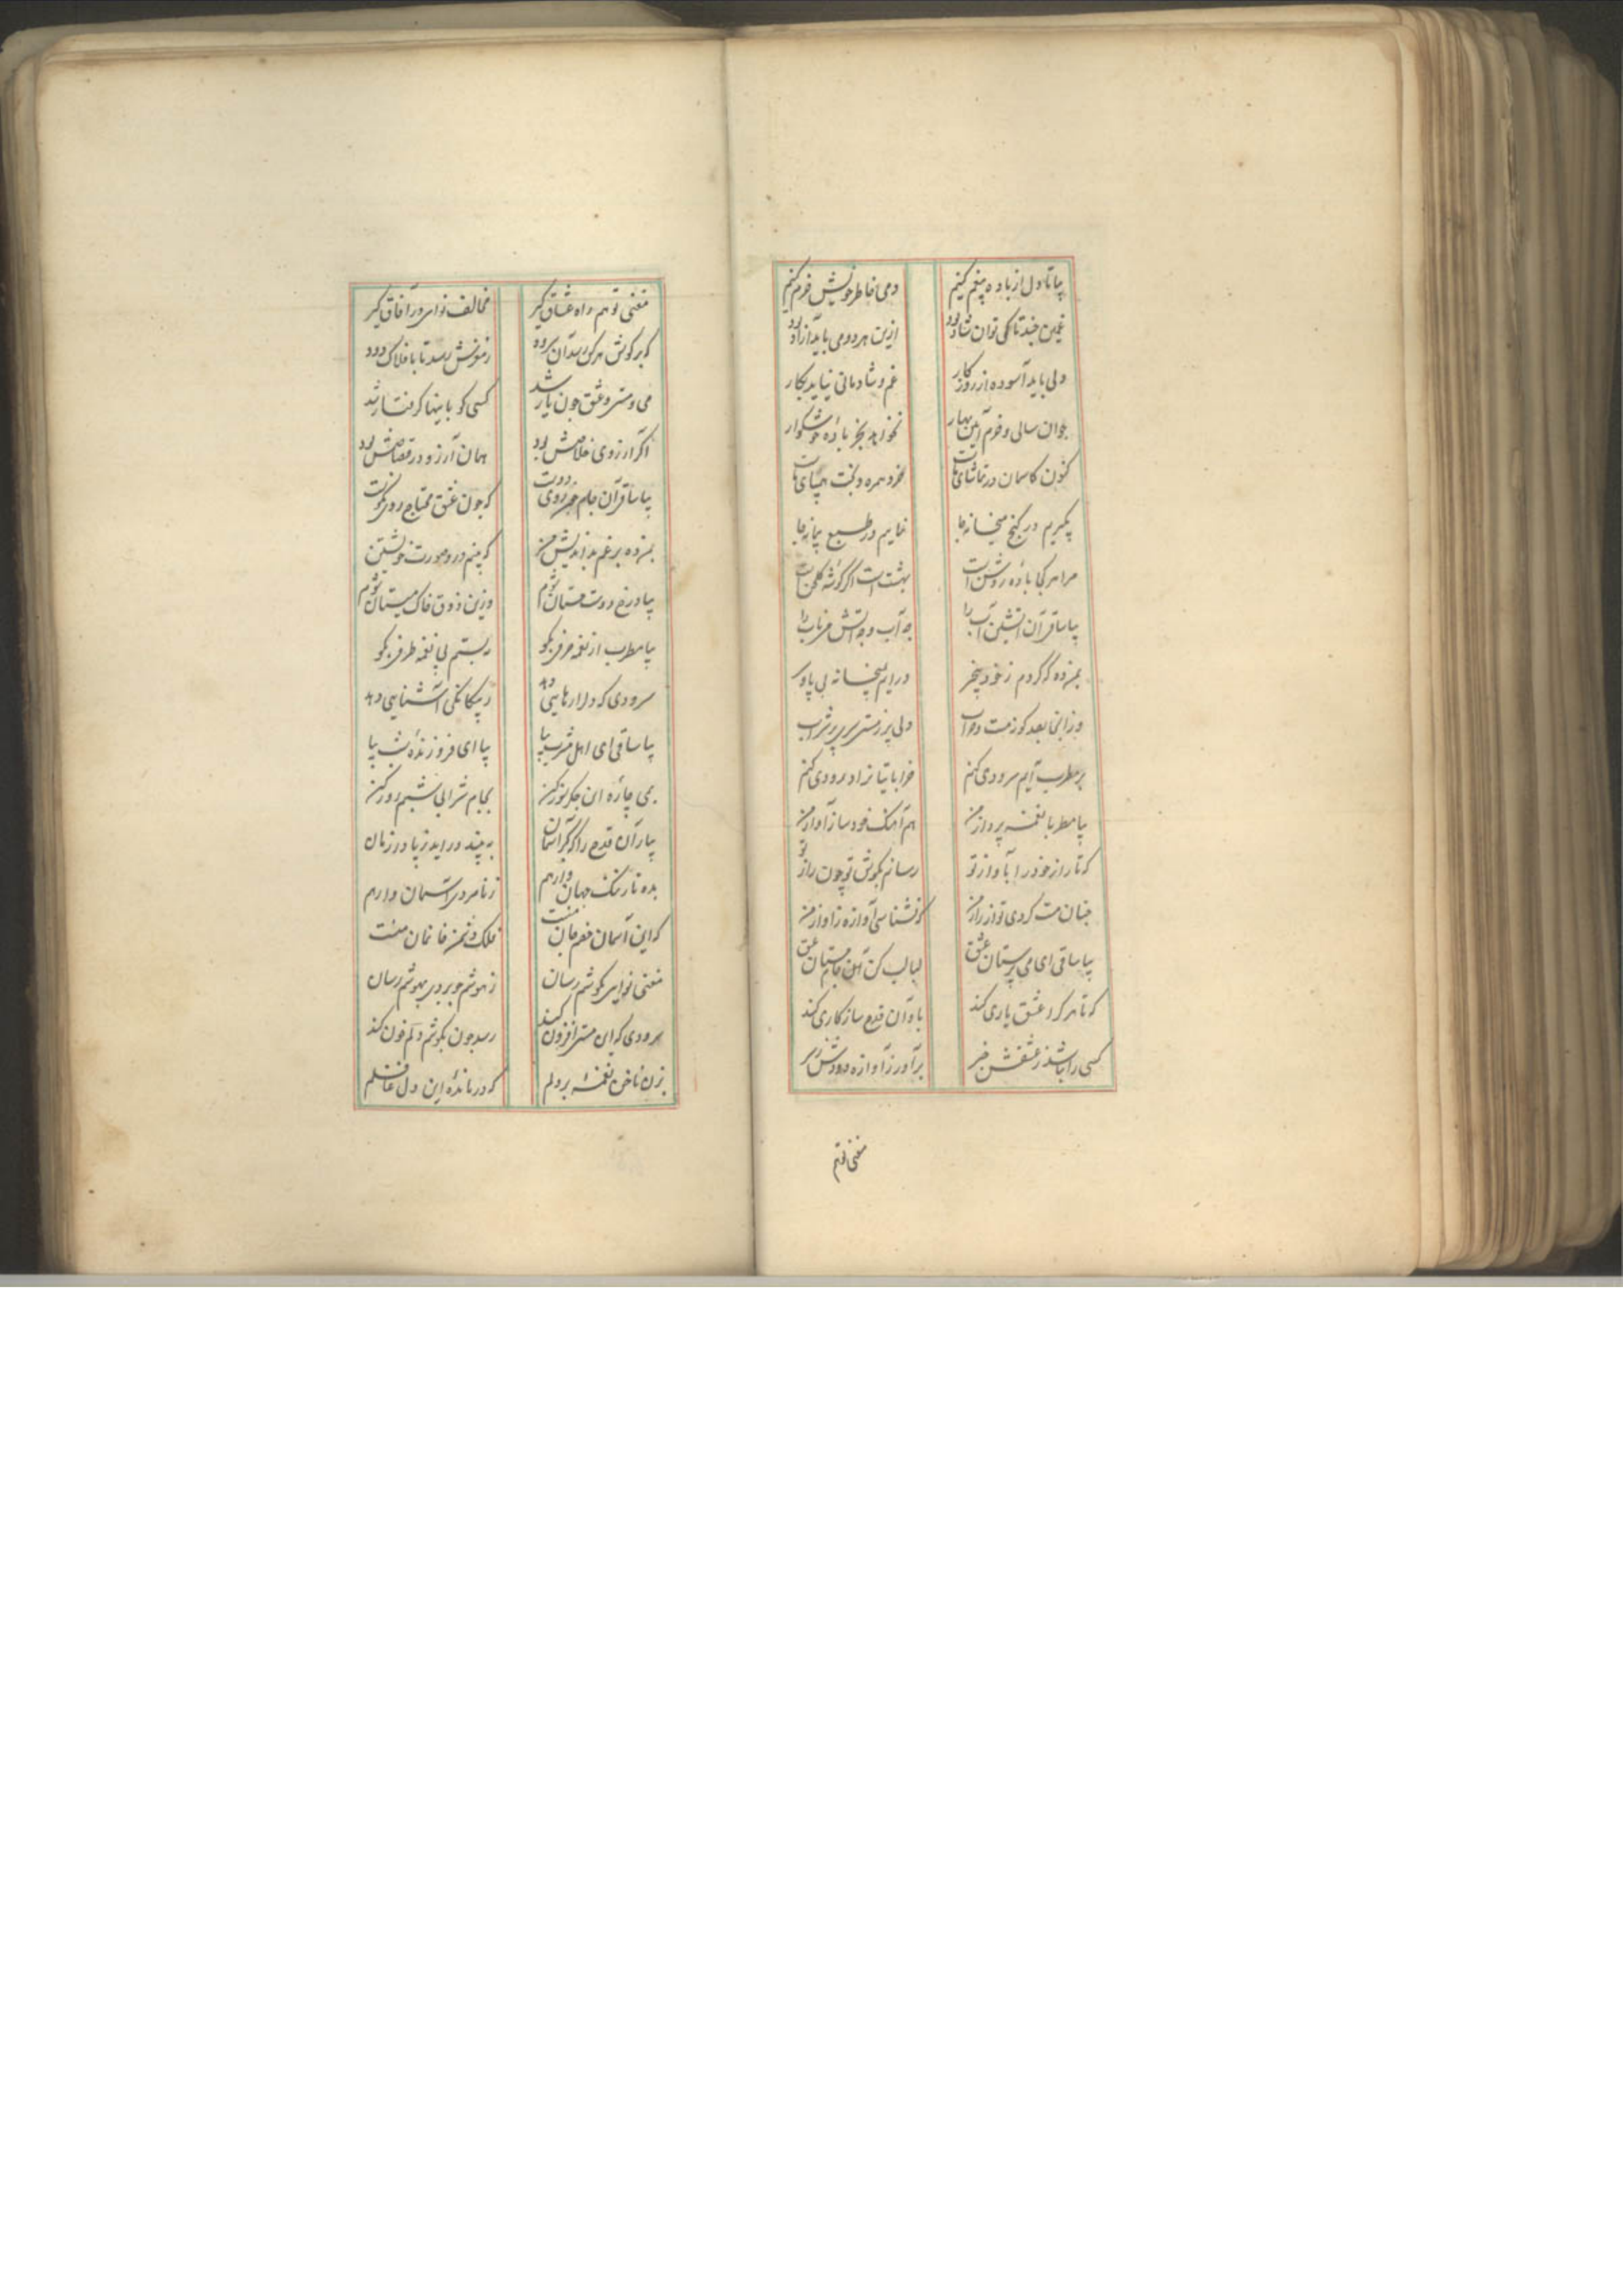 بیا تا دل از باده بیغم کنیم دمی خاطر خویش خرم کنیم
غمین چند تا کی توان شاد بود ازین هر دو می باید آزاد بود
دلی باید آسوده از روزگار غم و شادمانی نیاید بکار
جوان سالی و خرم این بهار نخواهد بجز باده خوشگوار
کنون کاسمان در تماشای ماست خرد همره و بخت همپای ماست
بگیریم در کنج میخانه جا نماییم در طبع پیمانه جا
مرا هر کجا باده روشن است بهشت است اگر گوشه گلخن است
بیا ساقی آن آتشین آب را چه آب و چه آتش می ناب را
بمن ده که گردم ز خود بیخبر درایم بمیخانه بی پا و سر
وز انجا بعد کوزمت و خراب دلی پر ز مستی سری پر شراب
بر مطرب آیم سرودی کنم خراباتیانرا درودی کنم
بیا مطربا نغمه پرداز من هم آهنگ خود ساز آواز من
که تا راز خود را بآواز تو رسانم بگوش تو چون راز تو
چنان مست گردی تو از راز من که نشناسی آوازه ز آواز من
بیا ساقی ای می پرستان عشق لبالب کن این جام مستان عشق
که تا هر کرا عشق یاری کند باو آن قدح سازگاری کند
کسی را باشد ز عشقش خبر برآور ز آوازه دودش ز سر
مغنی تو هم
مغنی تو هم راه عشاق گیر مخالف نوای در آفاق گیر
که بر گوش هر کس رسد آن سرود ز موتش رسد تا بافلاک دود
می و مستی و عشق چون یار شد کسی کو باینها گرفتار شد
اگر آرزوی خلاصش بود همان آرزو در قصاصش بود
بیا ساقی آن جام چون روی دوست که چون عشق محتاج روی نکوست
بمن ده برغم بداندیش من که بینم درو صورت خویشتن
بیا در رخ دوست مستان شوم وزین ذوق خاک میستان شوم
بیا مطرب از نغمه حرفی بگو نه بستم لی نغمه طرفی بگو
سرودی که دل را رهایی دهد ز بیگانگی آشنایی دهد
بیا ساقی ای اهل مشرب بیا بیا ای فروزنده شب بیا
بمی چاره این جگر سوز کن بجام شرابی شبم روز کن
بیار آن قدح را که گر آسمان به بیند دراید ز پا در زمان
بده تا ز ننگ جهان وارهم ز نامردی آسمان وارهم
که این آسمان خصم جان منست فلک دشمن خانمان منست
مغنی نوایی بگوشم رسان ز هوشم چو بردی بهوشم رسان
سرودی که این مستی افزون کند رسد چون بگوشم دلم خون کند
بزن ناخن نغمه بر دلم که درمانده این دل غافلم